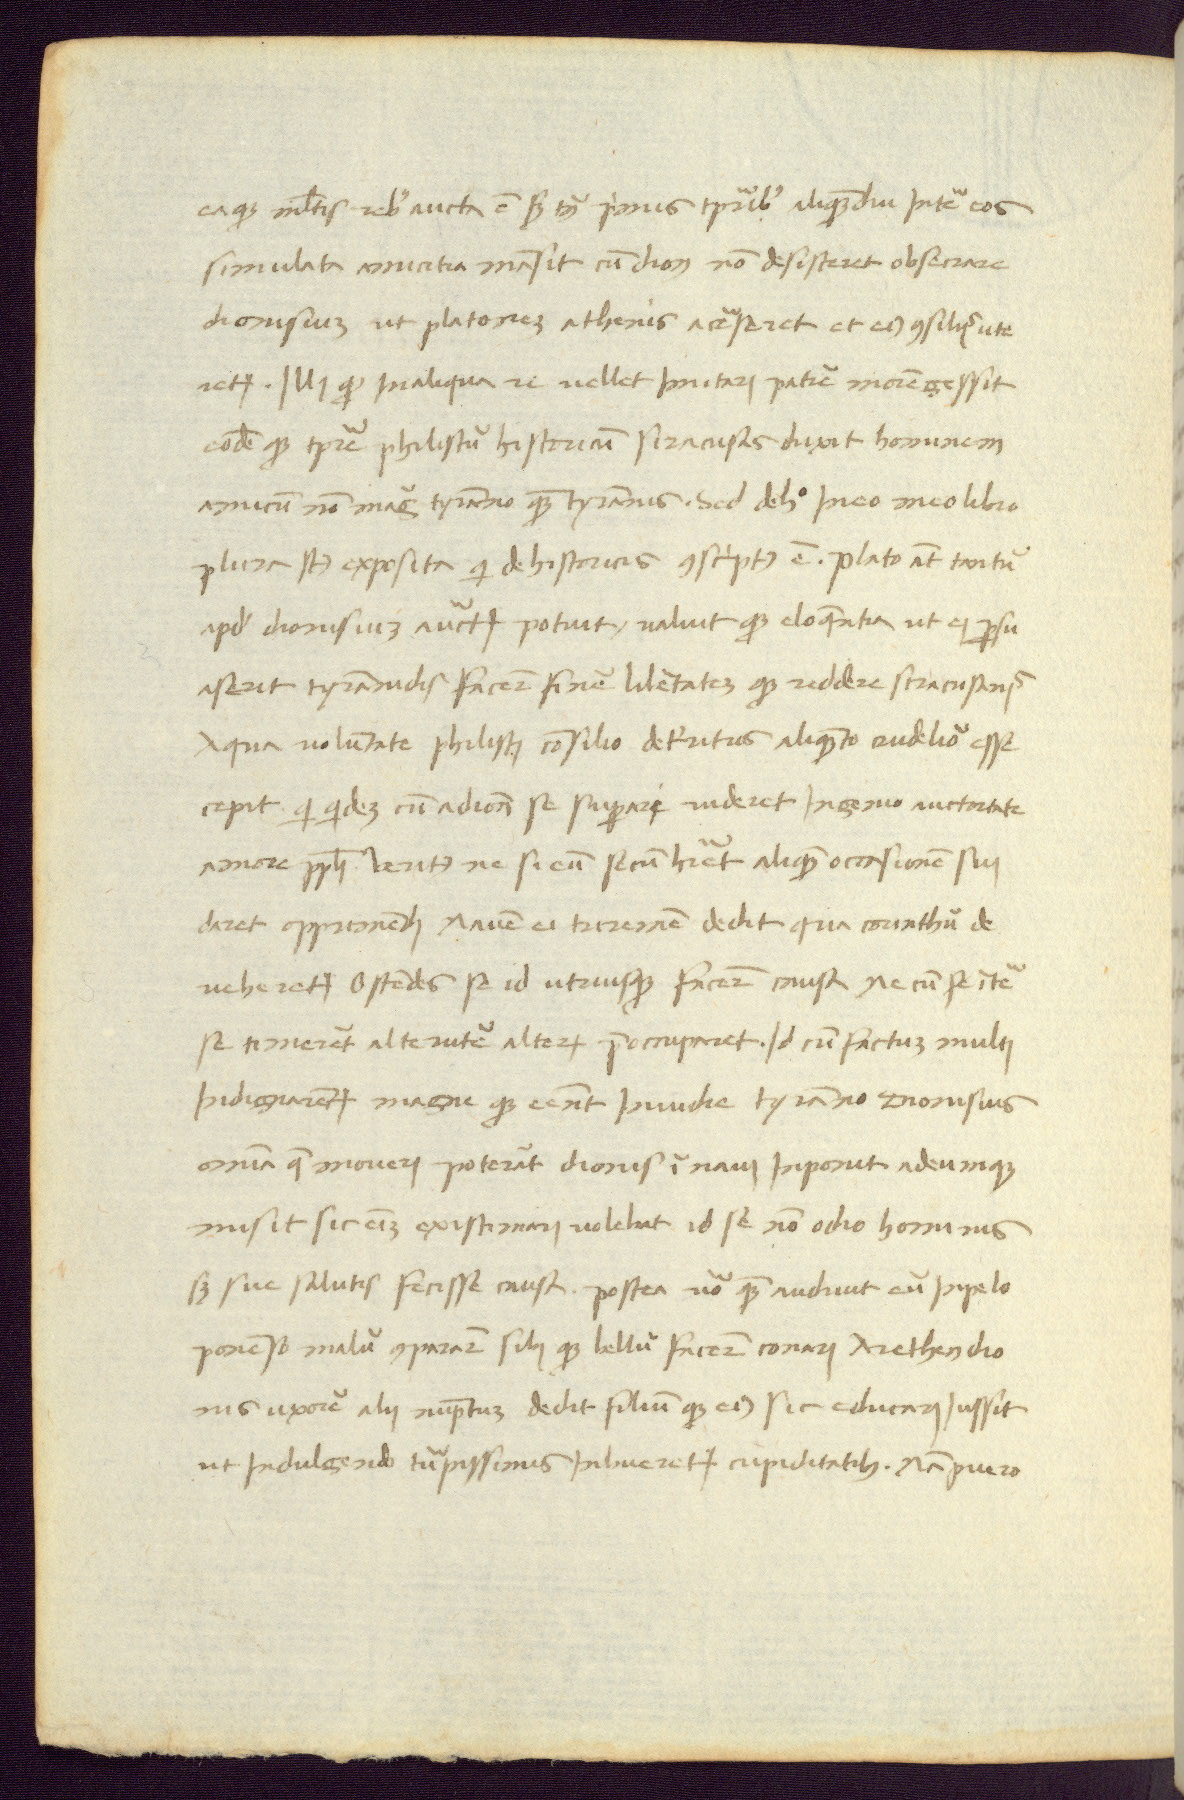 eaqꝫ ml̅tis rebꝰ aucta ē sꝫ tn̄ primis tpr̄ibꝰ aliqꝫdiu Inte͂ eos
simulata amicitia māsit cū dion nō desisteret obsecrare
dionisiuꝫ ut platoneꝫ athenis acc͂seret et eiꝰ ꝯsilijs ute
retʳ. Illi qui Inaliqua re uellet Imitari patrē morē gessit
eodē qꝫ tpr̄e philistū historicū siracusas duxit hominem
amicū nō mag̅ tyrāno quā tyrānis. Sed deh° Ineo meo libro
plura st̄ exposita qui dehistoricis ꝯscriptꝰ ē. Plato aūt tantū
apd̄ dionisiuꝫ auct͂te potuit, ualuit qꝫ eloquētia ut ei ꝑsu
aserit tyrānidis facer̄ finē lib͂tateꝫ qꝫ reddere siracusanis
Aqua uolūtate philisti cōsilio det͂ritus aliquāto crudelior esse
cepit qui quideꝫ cū adione se suꝑari uideret Ingenio auctoritate
amore ppl̄i Veritꝰ ne si eū secū hr̄et aliquā occasionē sui
daret opprimēdi Nauē ei triremē dedit qua corinthū de
ueheretʳ Ostēdēs se id utriusqꝫ facer̄ causa Ne cū se īt͂
se timerēt alterut͂ alterꝫ p̄occuparet. Id cū factuꝫ multi
Indignarētʳ magne qꝫ eēnt Inuidie tyrāno Dionisius
omīa q̄ moueri poterāt dionis ī naui Inposuit adeumqꝫ
misit sic eīꝫ existimari uolebat id se nō odio hominis
sꝫ sue salutis fecisse causa. postea uo͂ quā audiuit eū Inpelo
ponēso malū ꝯparar̄ sibi qꝫ bellū facer̄ conari Arethen dio
nis uxorē alij nuptuꝫ dedit filiū qꝫ eiꝰ sic educari Iussit
ut Indulgendo tu͂pissimis Inbueretʳ cupiditatibꝰ. Nā puero